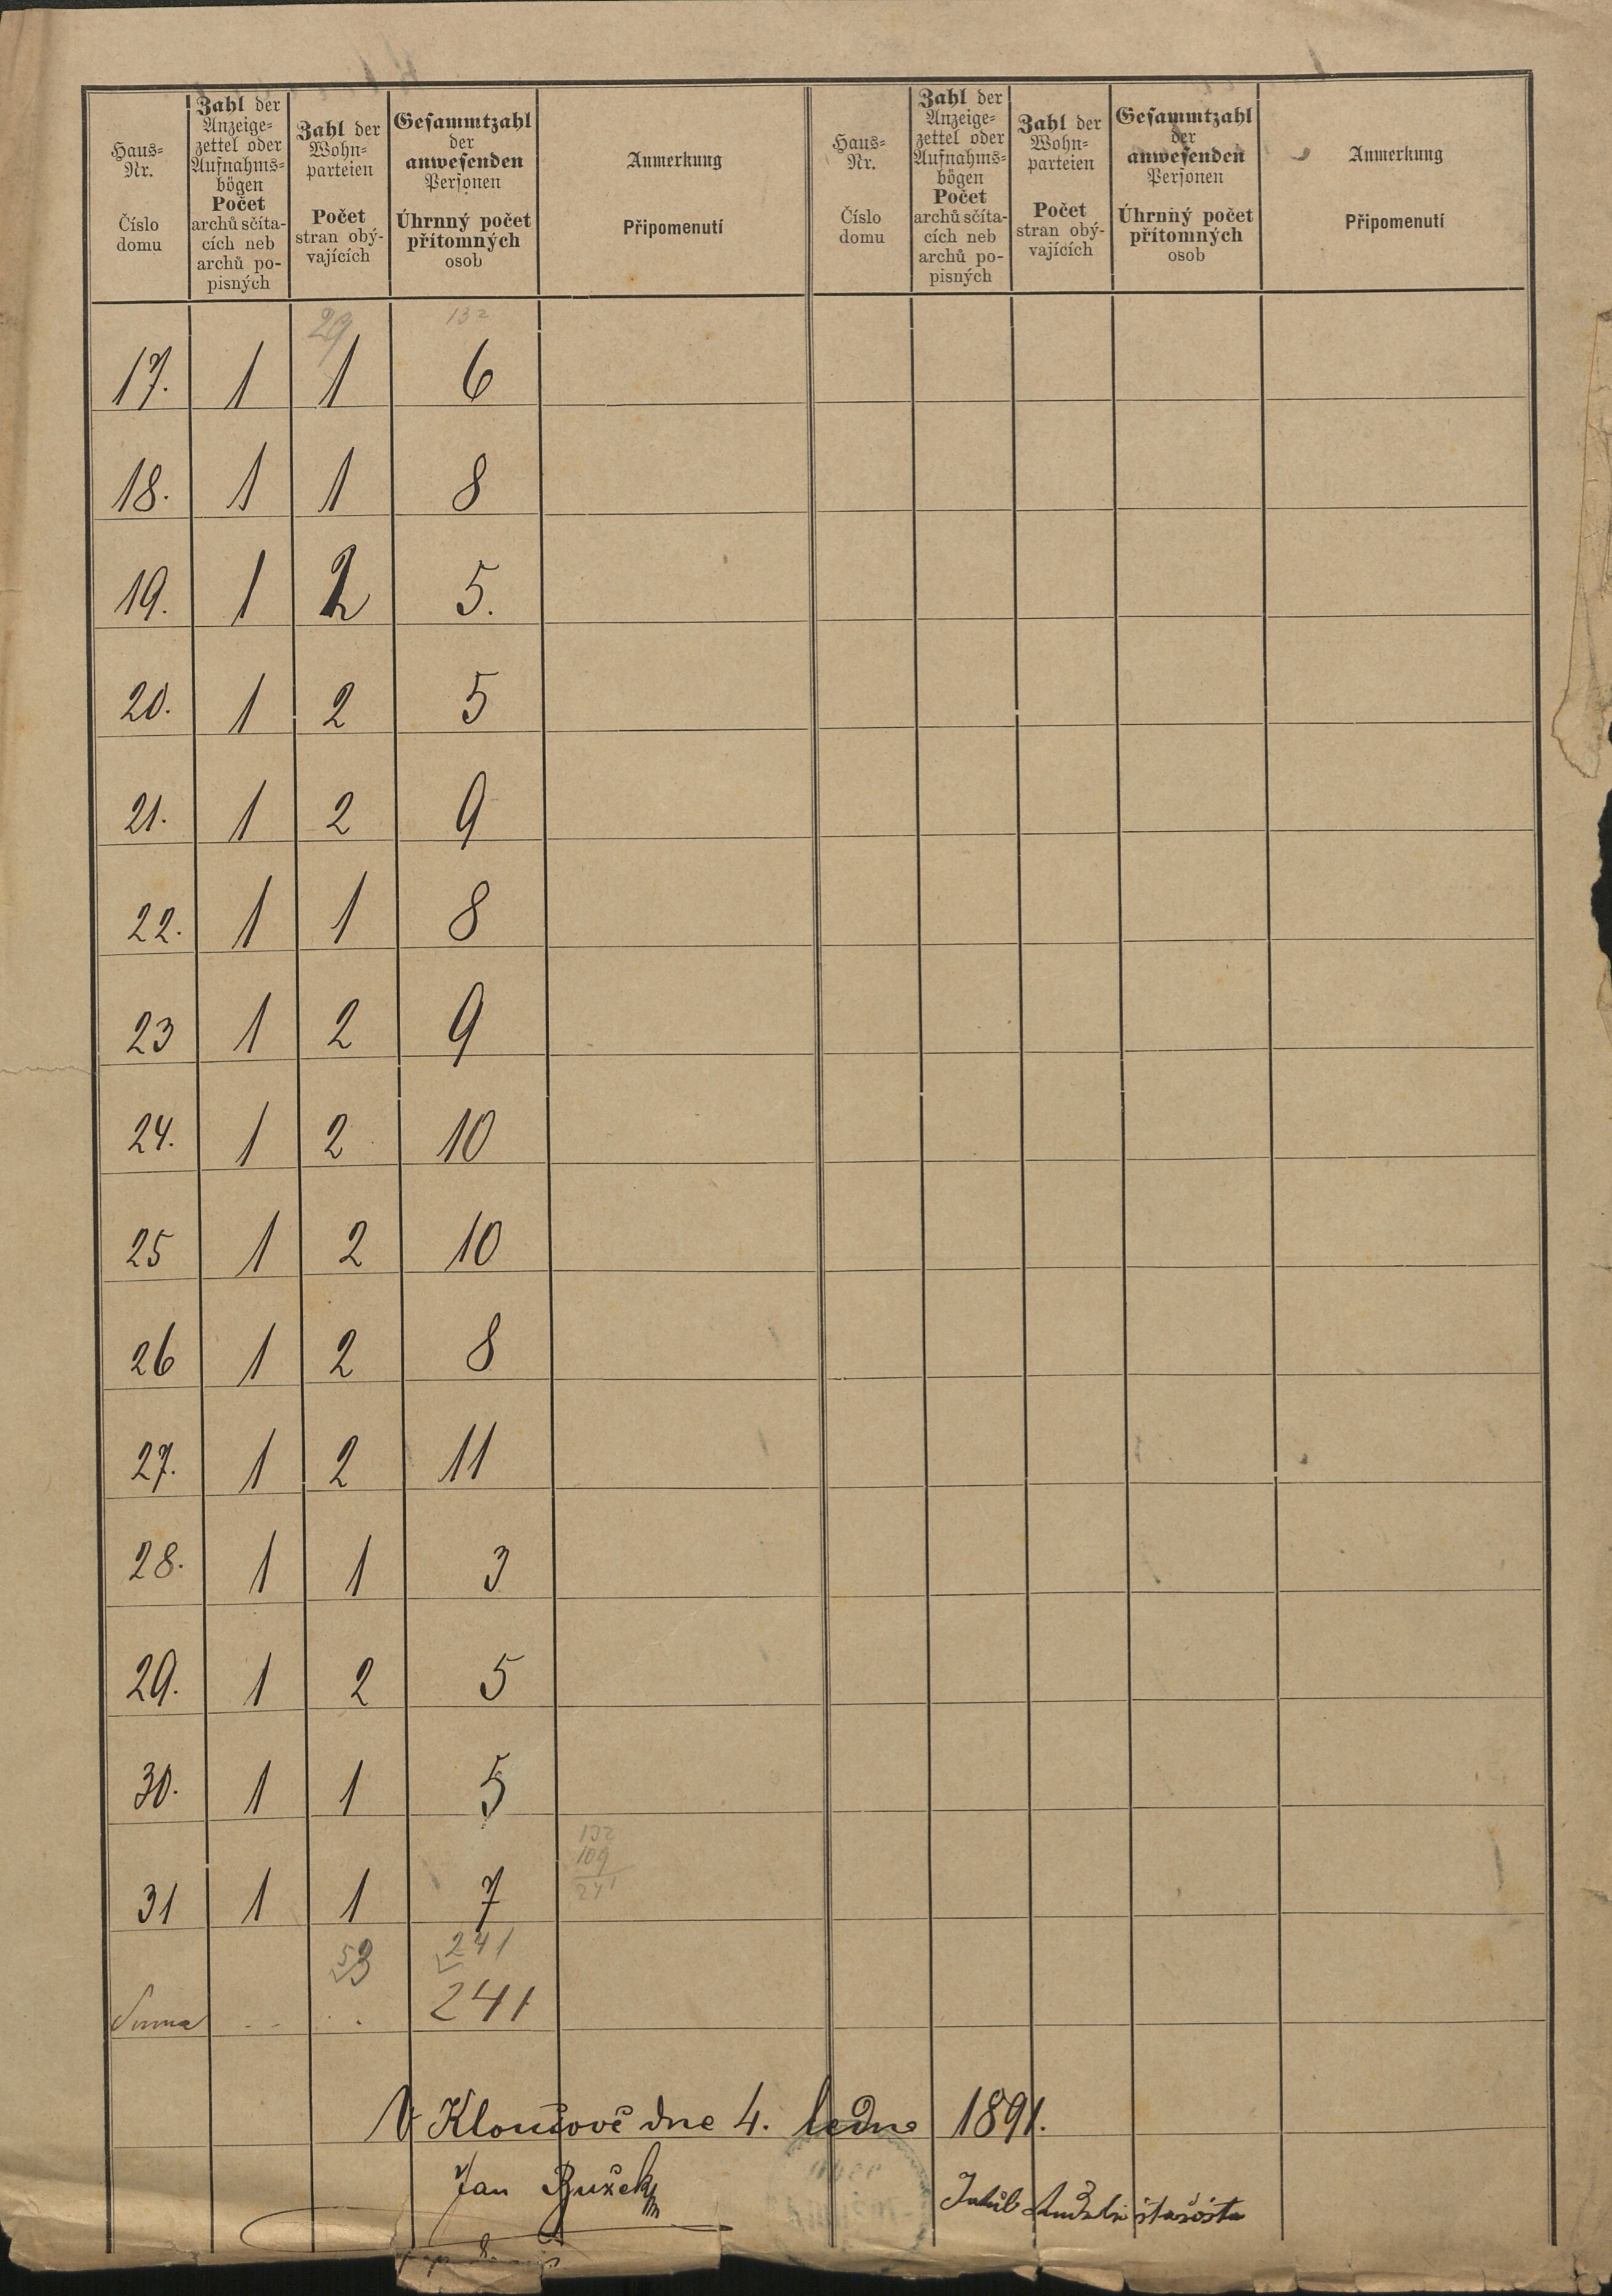 Haus-
Nr.
Číslo
domu
Zahl der
Anzeige-
zettel oder
Aufnahms-
bögen
Počet
archů sčíta-
cích neb
archů po-
pisných
Zahl der
Wohn-
parteien
Počet
stran obý-
vajících
Gesammtzahl
der
anwesenden
Personen
Úhrnný počet
přítomných
osob
Anmerkung
Připomenutí
Haus-
Nr.
Číslo
domu
Zahl der
Anzeige-
zettel oder
Aufnahms-
bögen
Počet
archů sčíta-
cích neb
archů po-
pisných
Zahl der
Wohn-
parteien
Počet
stran obý-
vajících
Gesammtzahl
der
anwesenden
Personen
Úhrnný počet
přítomných
osob
Anmerkung
Připomenutí
29 132
17. 1 1 6
18. 1 1 8
19. 1 2 5.
20. 1 2 5
21. 1 2 9
22. 1 1 8
23 1 2 9
24. 1 2 10
25 1 2 10
26 1 2 8
27. 1 2 11
28. 1 1 3
29. 1 2 5
30. 1 1 5
132
109
241
31 1 1 7
53 241
Suma 241
V Kloužově dne 4. ledna 1891.
Jan Bužek
Jakub starosta